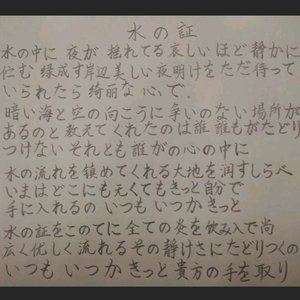 水の証
水の中に 夜が 揺れてる 哀しい ほど 静かに
佇む 緑成す岸辺 美しい 夜明けを ただ 待って
いられたら 綺麗な 心で.
暗い海と空の向こうに 争いのない 場所が
あるのと 教えてくれたのは 誰 誰もがたどり
つけない それとも 誰かの心の中に
水の流れを鎮めてくれる 大地を 潤すしらべ
いまはどこにも なくても きっと 自分で
手に入れるの いつも いつか きっと
水の証をこのてに 全ての炎を 飲み入で 尚
広く 優しく 流れる その静けさに たどりつくの
いつも いつか きっと 貴方の 手を 取り